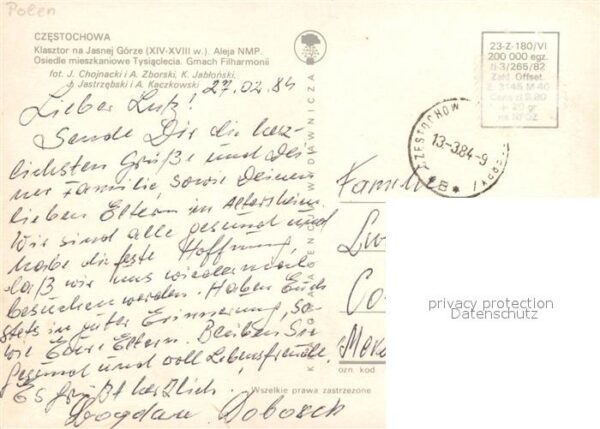 Polen
CZĘSTOCHOWA
Klasztor na Jasnej Górze (XIV-XVIII w.). Aleja NMP.
Osiedle mieszkaniowe Tysiąclecia. Gmach Filharmonii
fot. J. Chojnacki i A. Zborski, K. Jabłoński,
J. Jastrzębski i A. Kaczkowski
27.02.84
Lieber Lutz!
Sende Dir die herz-
lichsten Grüße und Dei-
ner Familie, sowie Deinen
lieben Eltern im Altersheim.
Wir sind alle gesund und
habe die feste Hoffnung,
daß wir uns wiedermal
besuchen werden. Haben Euch
stets in guter Erinnerung, so-
wie Eure Eltern. Bleiben Sie
gesund und voll Lebensfreude.
Es grüßt herzlich
Bogdan Dobosch
KRAJOWA AGENCJA WYDAWNICZA
23-Z-180/VI
200 000 egz.
N-3/265/82
Zakł. Offset.
Z. 3145 M-40
CZĘSTOCHOWA
13-3.84-9
* B *
Familie
Lu
Co
ozn. kod
Wszelkie prawa zastrzeżone
privacy protection
Datenschutz